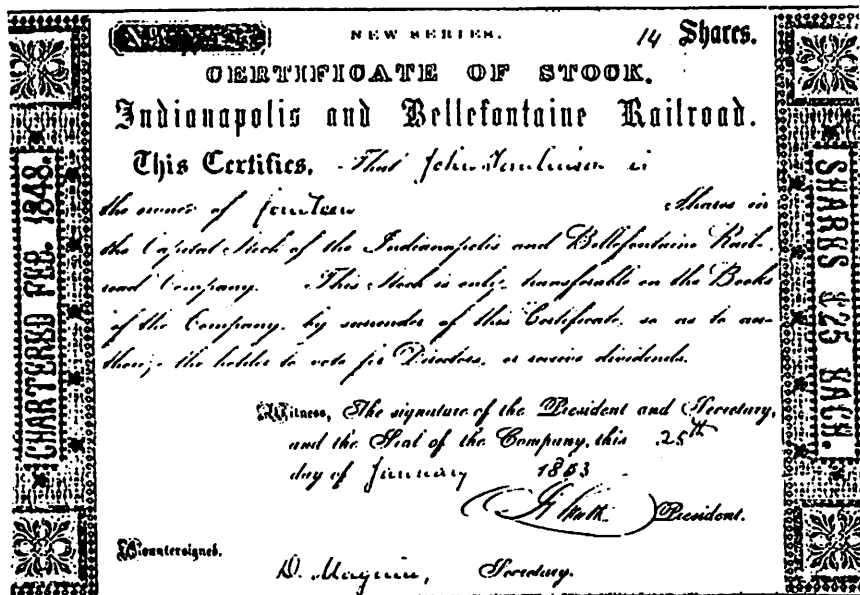 NEW SERIES. 14 Shares.
CERTIFICATE OF STOCK.
Indianapolis and Bellefontaine Railroad.
This Certifies, That John Tomlinson is
the owner of fourteen Shares in
the Capital Stock of the Indianapolis and Bellefontaine Rail-
road Company. This Stock is only transferable on the Books
of the Company, by surrender of this Certificate, so as to au-
thorize the holder to vote for Directors, or receive dividends.
Witness, The signature of the President and Secretary,
and the Seal of the Company, this 25th
day of January 1853
President.
Countersigned.
D. Maguire, Secretary.
CHARTERED FEB. 1848.
SHARES $25 EACH.